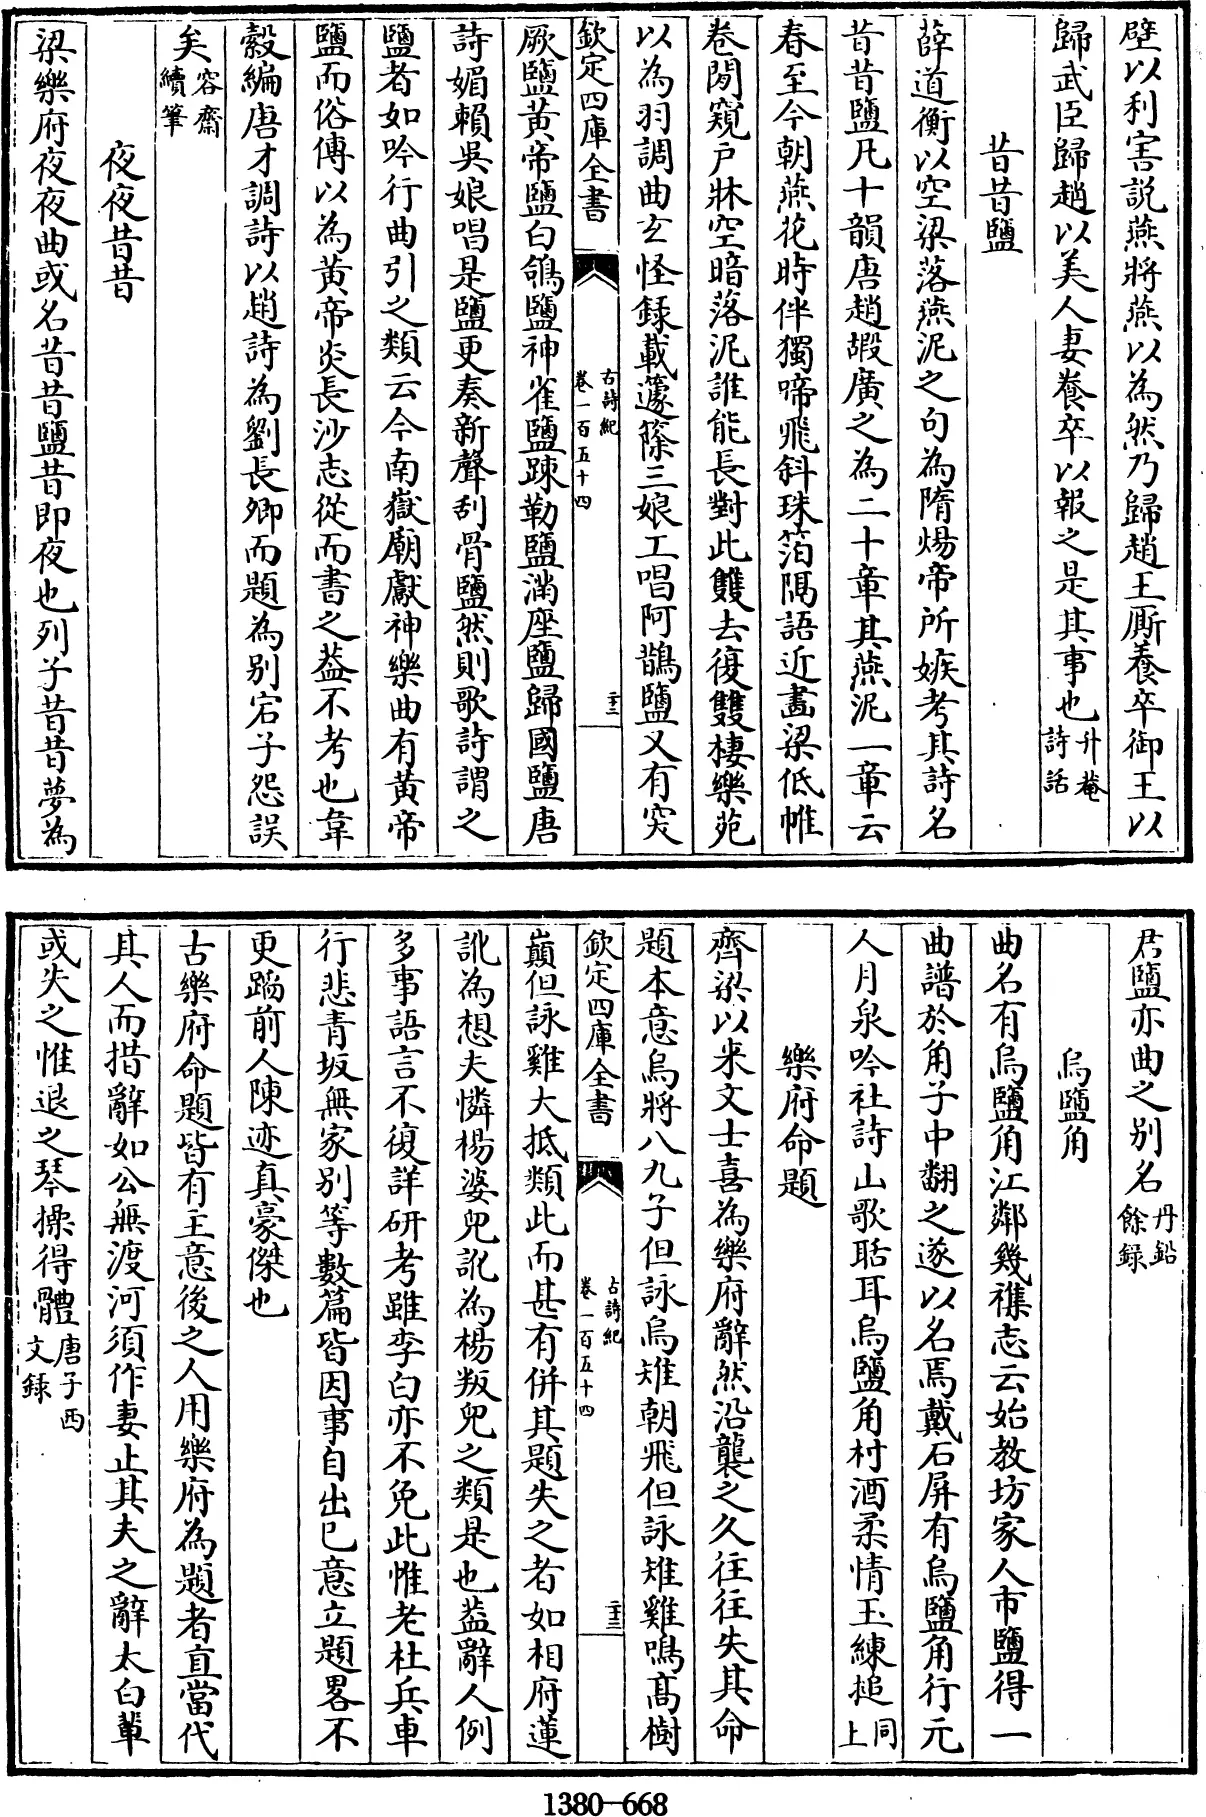 壁以利害説燕將燕以為然乃歸趙王厮養卒御王以
歸武臣歸趙以美人妻養卒以報之是其事也升菴詩話
昔昔鹽
薛道衡以空梁落燕泥之句為隋煬帝所嫉考其詩名
昔昔鹽凡十韻唐趙嘏廣之為二十章其燕泥一章云
春至今朝燕花時伴獨啼飛斜珠箔隅語近畫梁低帷
卷閒窺户牀空暗落泥誰能長對此雙去復雙棲樂苑
以為羽調曲玄怪録載籧篨三娘工唱阿鵲鹽又有突
欽定四庫全書
古詩紀
卷一百五十四
二十二
厥鹽黄帝鹽白鴿鹽神雀鹽踈勒鹽滿座鹽歸國鹽唐
詩媚賴吳娘唱是鹽更奏新聲刮骨鹽然則歌詩謂之
鹽者如吟行曲引之類云今南嶽廟獻神樂曲有黄帝
鹽而俗傳以為黄帝炎長沙志從而書之葢不考也韋
縠編唐才調詩以趙詩為劉長卿而題為别宕子怨誤
矣容齋續筆
夜夜昔昔
梁樂府夜夜曲或名昔昔鹽昔即夜也列子昔昔夢為
君鹽亦曲之别名丹鉛餘録
烏鹽角
曲名有烏鹽角江鄰幾襍志云始教坊家人市鹽得一
曲譜於角子中翻之遂以名焉戴石屏有烏鹽角行元
人月泉吟社詩山歌聒耳烏鹽角村酒柔情玉練搥同上
樂府命題
齊梁以来文士喜為樂府辭然沿襲之久往往失其命
題本意烏將八九子但詠烏雉朝飛但詠雉雞鳴髙樹
欽定四庫全書
古詩紀
卷一百五十四
二十三
巔但詠雞大抵類此而甚有併其題失之者如相府蓮
訛為想夫憐楊婆兒訛為楊叛兒之類是也葢辭人例
多事語言不復詳研考雖李白亦不免此惟老杜兵車
行悲青坂無家别等數篇皆因事自出已意立題畧不
更蹈前人陳迹真豪傑也
古樂府命題皆有主意後之人用樂府為題者直當代
其人而措辭如公無渡河須作妻止其夫之辭太白輩
或失之惟退之琴操得體唐子西文録
1380—668